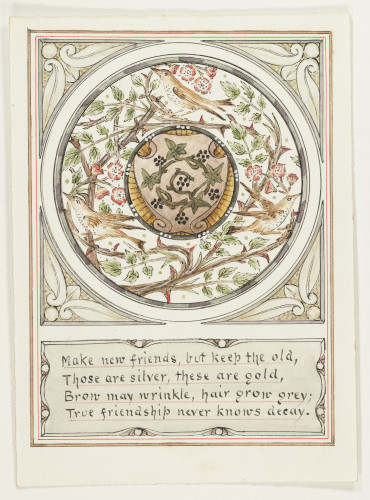 Make new friends, but keep the old,
Those are silver, these are gold,
Brow may wrinkle, hair grow grey;
True friendship never knows decay.